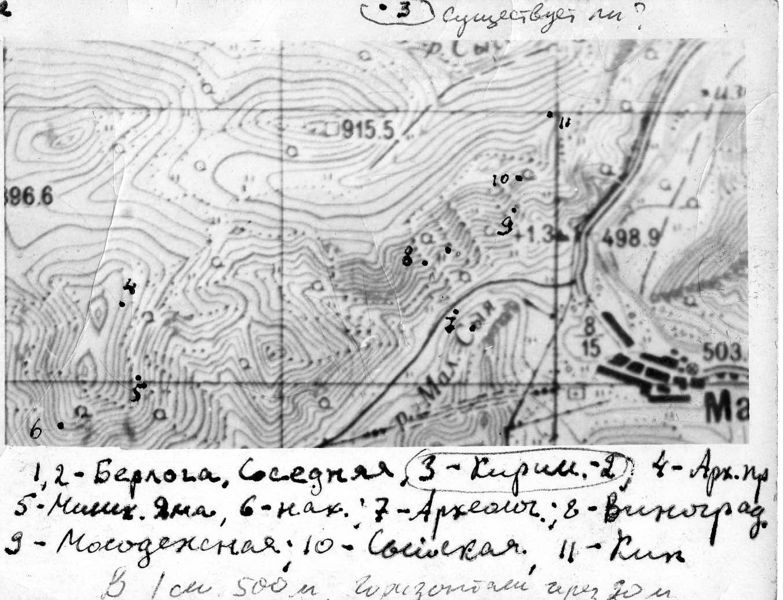 2
• 3 Существует ли?
р. Сы
915.5
11
10
896.6
9
+1.3
498.9
8
4
7
р. Мал. Сыя
8
15
503.
5
Ма
6
1, 2 - Берлога, Соседняя, 3 - Кирил.-2, 4 - Арх. пр
5 - Мышк. Яма, 6 - нак.; 7 - Археолог.; 8 - Виноград.
9 - Молодежная; 10 - Сыйская, 11 - Кик
В 1 см 500 м, горизонтали через 20 м